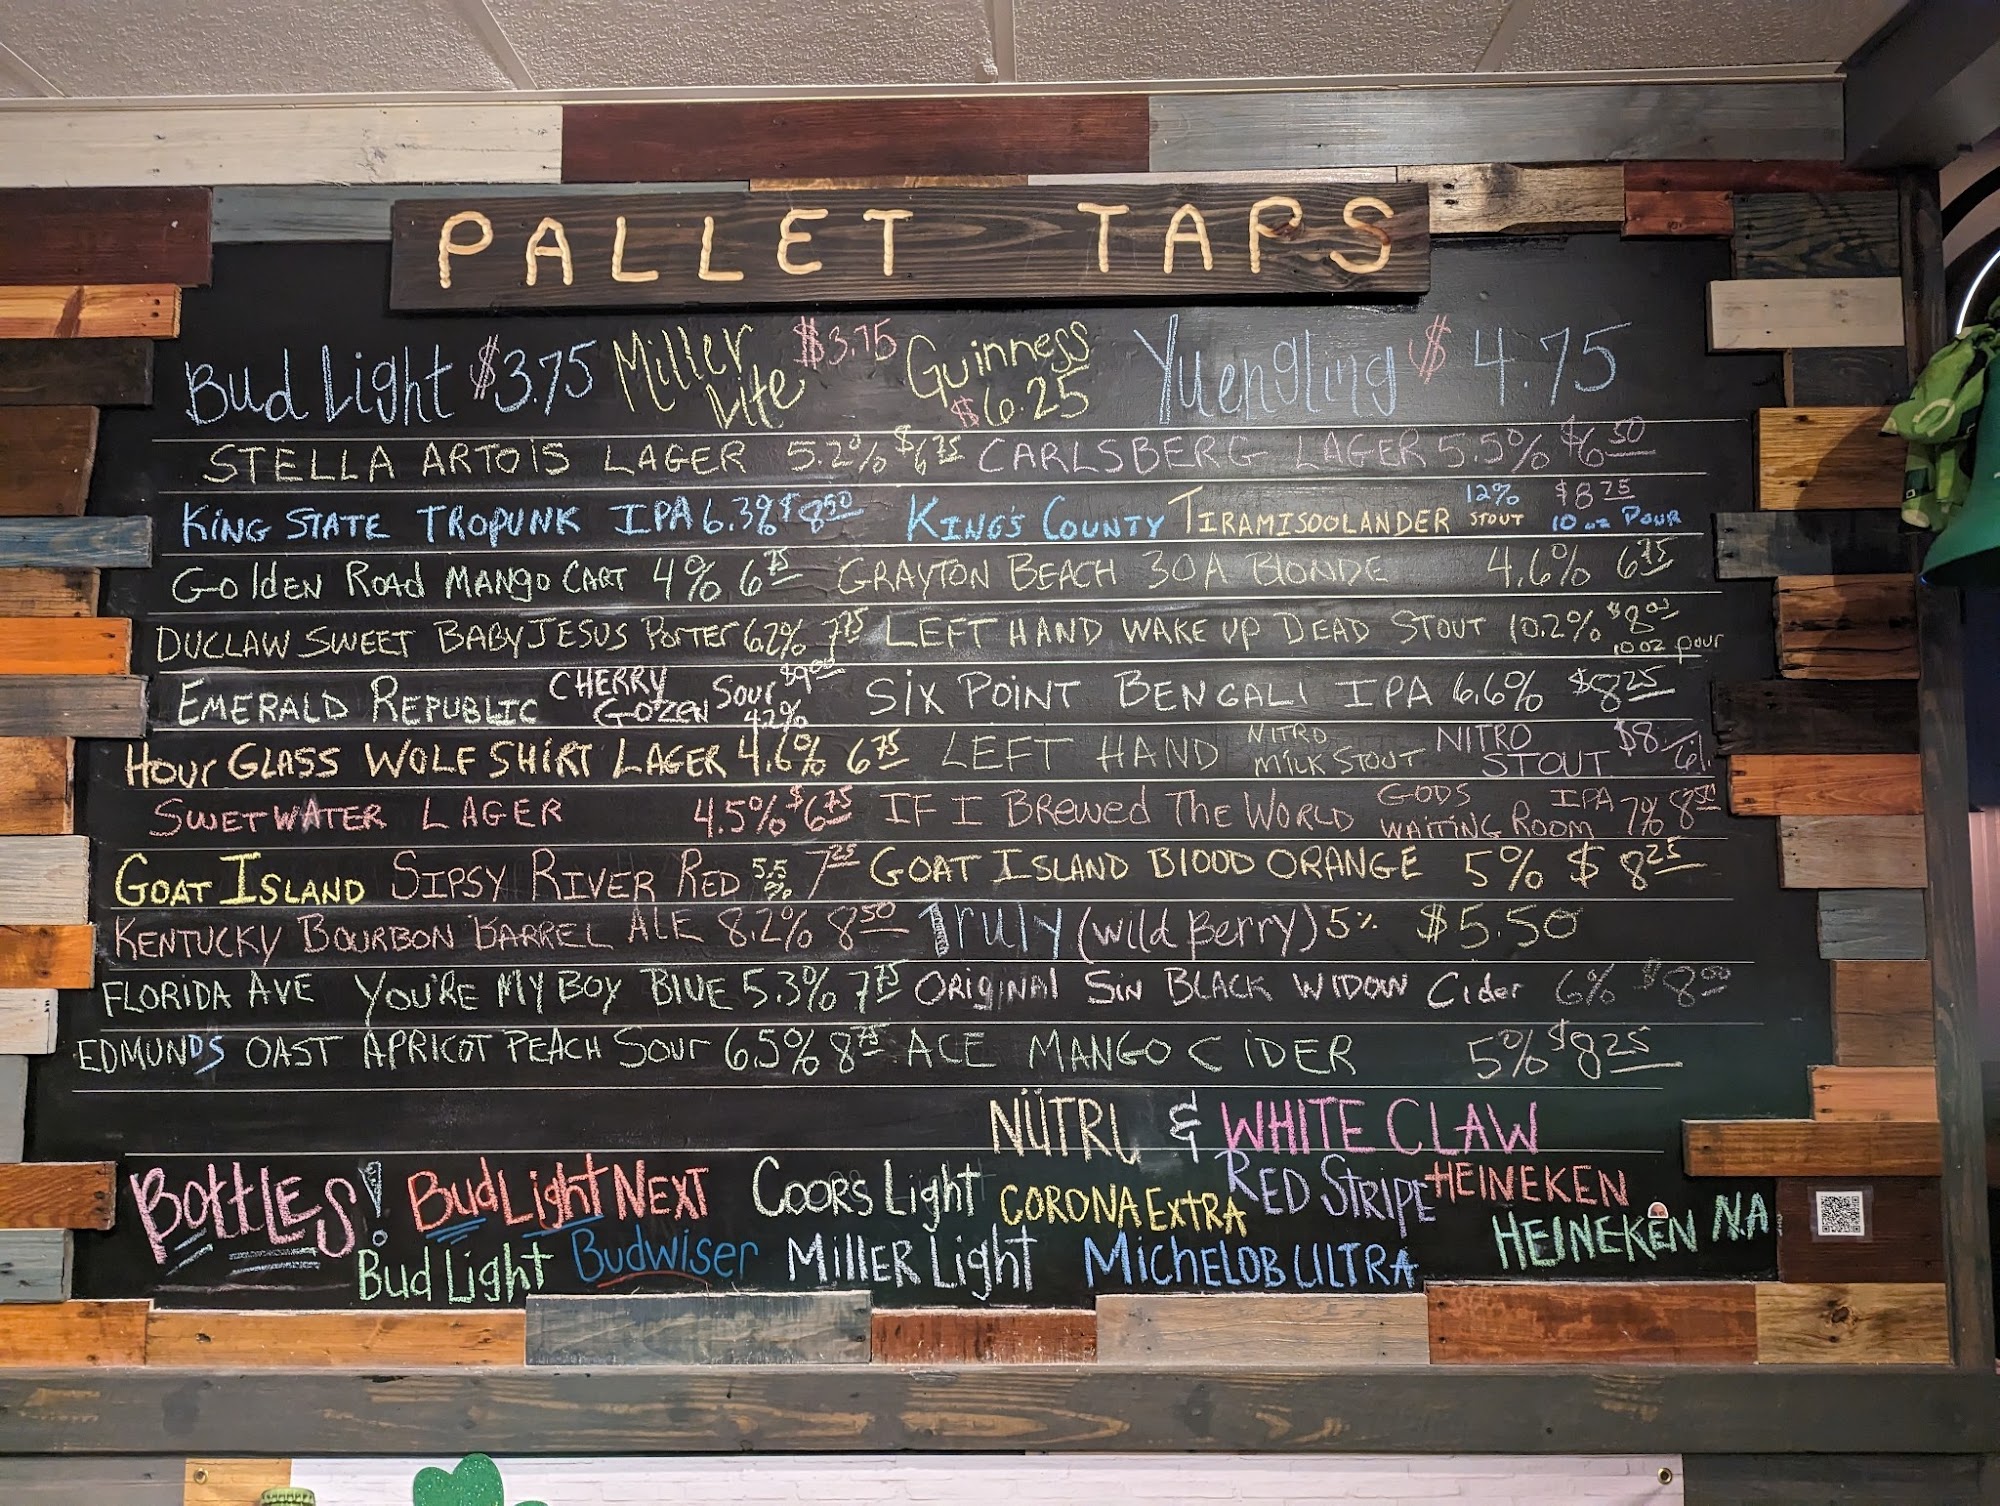 PALLET TAPS
Bud Light $3.75 Miller Lite $3.75 Guinness $6.25 Yuengling $4.75
STELLA ARTOIS LAGER 5.2% $6.75 CARLSBERG LAGER 5.5% $6.50
KING STATE TROPUNK IPA 6.3% $8.50 KING'S COUNTY TIRAMISOOLANDER 12% STOUT $8.75 10 oz POUR
GOlDEN ROAD MANGO CART 4% 6.75 GRAYTON BEACH 30A BLONDE 4.6% 6.75
DUCLAW SWEET BABY JESUS PORTER 6.2% 7.75 LEFT HAND WAKE UP DEAD STOUT 10.2% $8.00 10 oz pour
EMERALD REPUBLIC CHERRY GOZEN SOUR $9.00 4.2% SIX POINT BENGALI IPA 6.6% $8.25
HOUr GLASS WOLF SHIRT LAGER 4.6% 6.75 LEFT HAND NITRO MILK STOUT NITRO STOUT $8 6%
SWETWATER LAGER 4.5% $6.75 IF I BREWED THE WORLD GODS WAITING ROOM IPA 7% 8.50
GOAT ISLAND SIPSY RIVER RED 5.5% 7.25 GOAT ISLAND BLOOD ORANGE 5% $8.25
KENTUCKY BOURBON BARREL ALE 8.2% 8.50 Truly (Wild Berry) 5% $5.50
FLORIDA AVE YOU'RE MY BOY BLUE 5.3% 7.75 ORIGINAl SIN BLACK WIDOW Cider 6% $8.00
EDMUNDS OAST APRICOT PEACH SOUR 6.5% 8.75 ACE MANGO CIDER 5% $8.25
NÜTRL & WHITE CLAW
BOttLES! Bud Light NEXT COORS Light CORONA ExTRA RED STRIPE HEINEKEN
Bud Light Budwiser MILLER Light MICHELOB ULTRA HEINEKEN N.A.